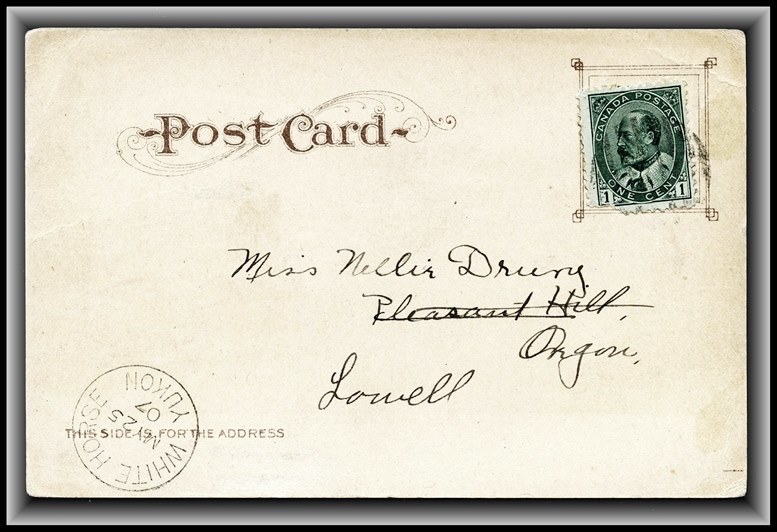 Post Card
CANADA POSTAGE
1 ONE CENT 1
Miss Nellie Drury
Pleasant Hill,
Oregon,
Lowell
THIS SIDE IS FOR THE ADDRESS
WHITE HORSE
YUKON
MY 25
07